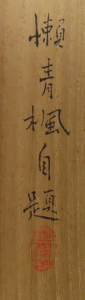 懶青楓自題